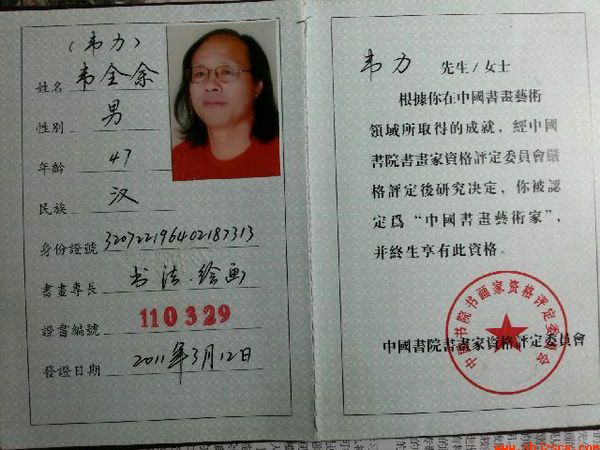 （韦力）
姓名 韦全余
性别 男
年龄 47
民族 汉
身份證號 320722196402187313
書畫專長 书法.绘画
證書編號 110329
發證日期 2011年3月12日
韦力 先生/女士
根據你在中國書畫藝術
領域所取得的成就，經中國
書院書畫家資格評定委員會嚴
格評定後研究决定，你被認
定爲“中國書畫藝術家”，
并終生享有此資格。
中國書院書畫家資格評定委員會
中國书院书画家资格评定委员会